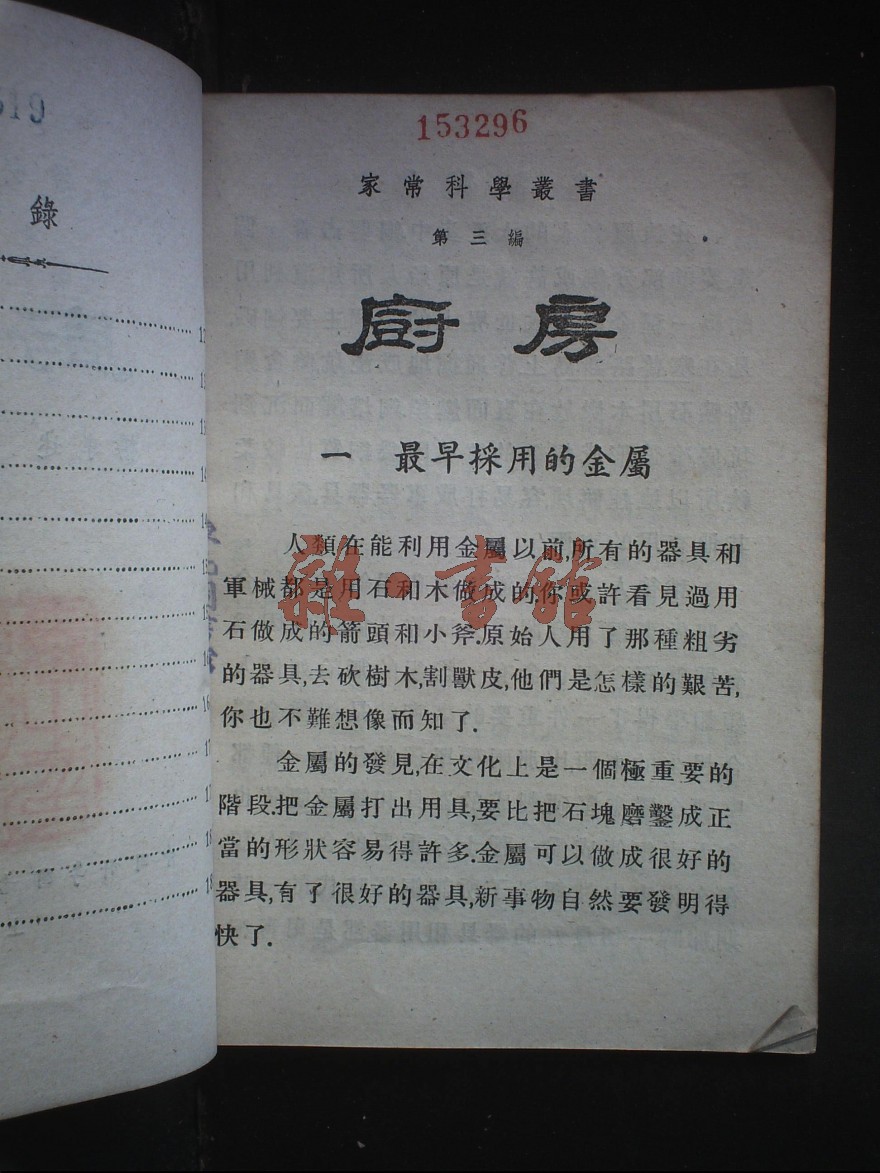 錄
153296
家常科學叢書
第三編
廚房
一 最早採用的金屬
人類在能利用金屬以前,所有的器具和
軍械都是用石和木做成的.你或許看見過用
石做成的箭頭和小斧.原始人用了那種粗劣
的器具,去砍樹木,割獸皮,他們是怎樣的艱苦,
你也不難想像而知了.
金屬的發見,在文化上是一個極重要的
階段.把金屬打出用具,要比把石塊磨鑿成正
當的形狀容易得許多.金屬可以做成很好的
器具,有了很好的器具,新事物自然要發明得
快了.
雜·書館